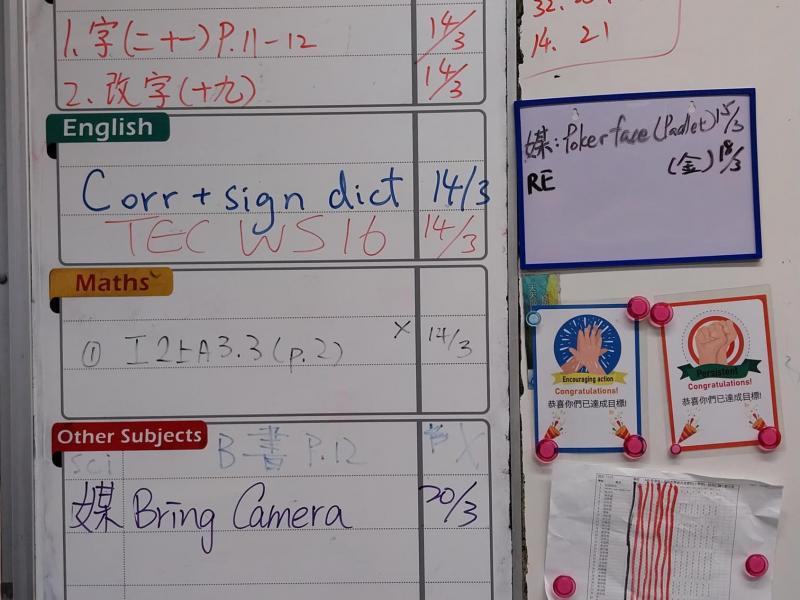 1. 字(二十一) P.11-12 14/3
2. 改字(十九) 14/3
English
Corr + sign dict 14/3
TEC WS 16 14/3
Maths
① 工2上A3.3(p.2) × 14/3
Other Subjects
sci B書 P.12 X
媒 Bring Camera 20/3
14. 21
媒: Poker face (Padlet) 15/3
(金) 18/3
RE
Encouraging action
Congratulations!
恭喜你們已達成目標!
Persistent
Congratulations!
恭喜你們已達成目標!